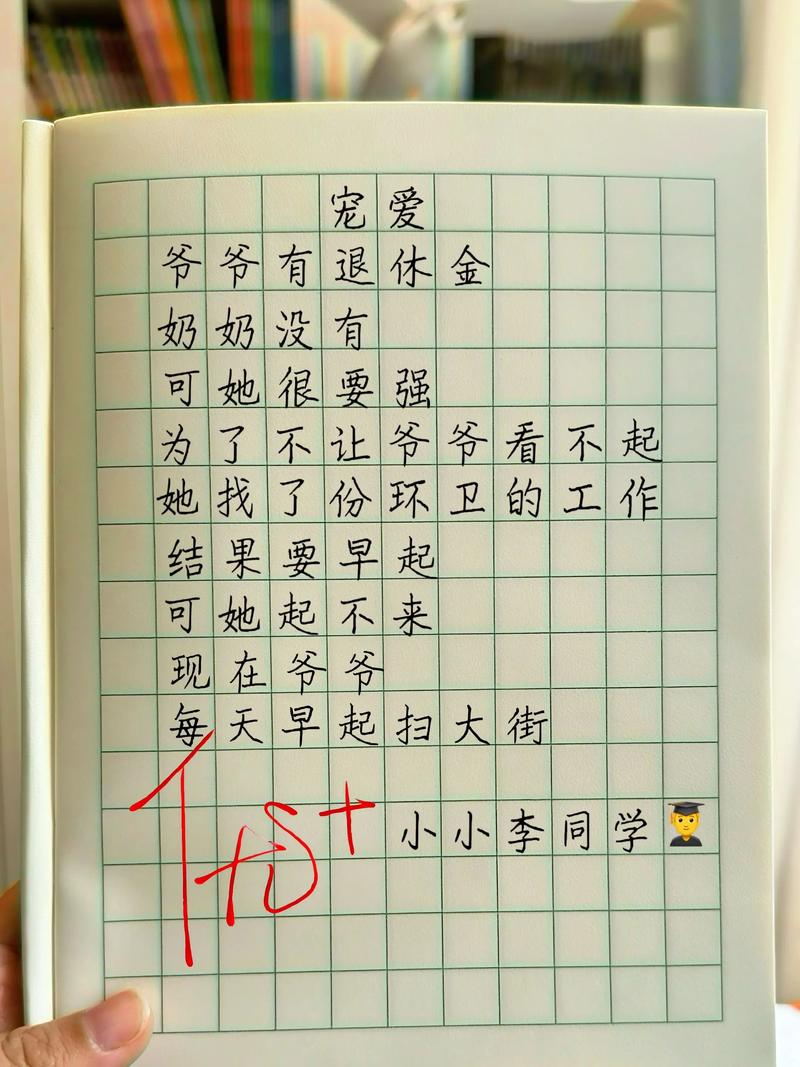 宠爱
爷爷有退休金
奶奶没有
可她很要强
为了不让爷爷看不起
她找了份环卫的工作
结果要早起
可她起不来
现在爷爷
每天早起扫大街
优+
小小李同学